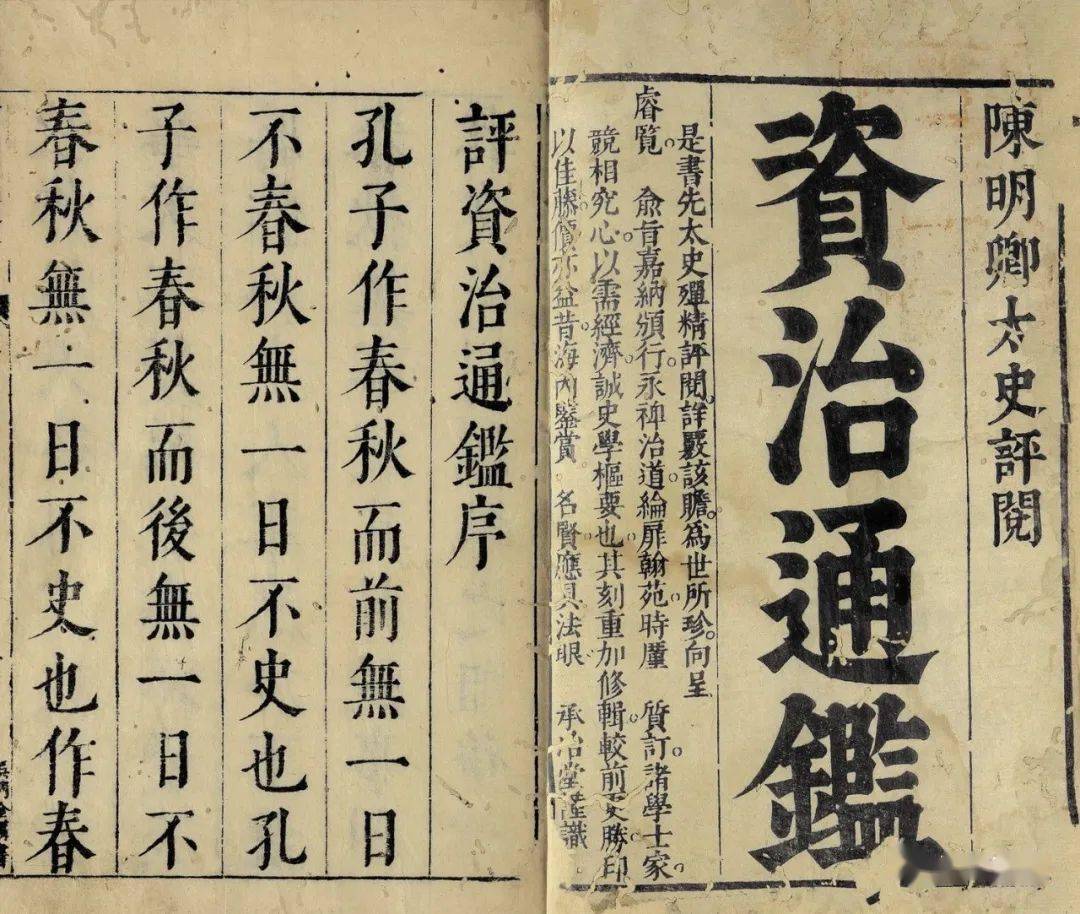 陳明卿太史評閱
資治通鑑
是書先太史殫精評閱詳覈該贍。為世所珍。向呈
睿覽 俞旨嘉納頒行。永裨治道。綸扉翰苑。時廑 質訂。諸學士家。
競相究心。以需經濟。誠史學樞要也。其刻重加修輯。較前更勝。印
以佳。勝價亦益昔。海內鑒賞。名賢應具法眼 承治堂謹識
評資治通鑑序
孔子作春秋而前無一日
不春秋無一日不史也孔
子作春秋而後無一日不
春秋無一日不史也作春